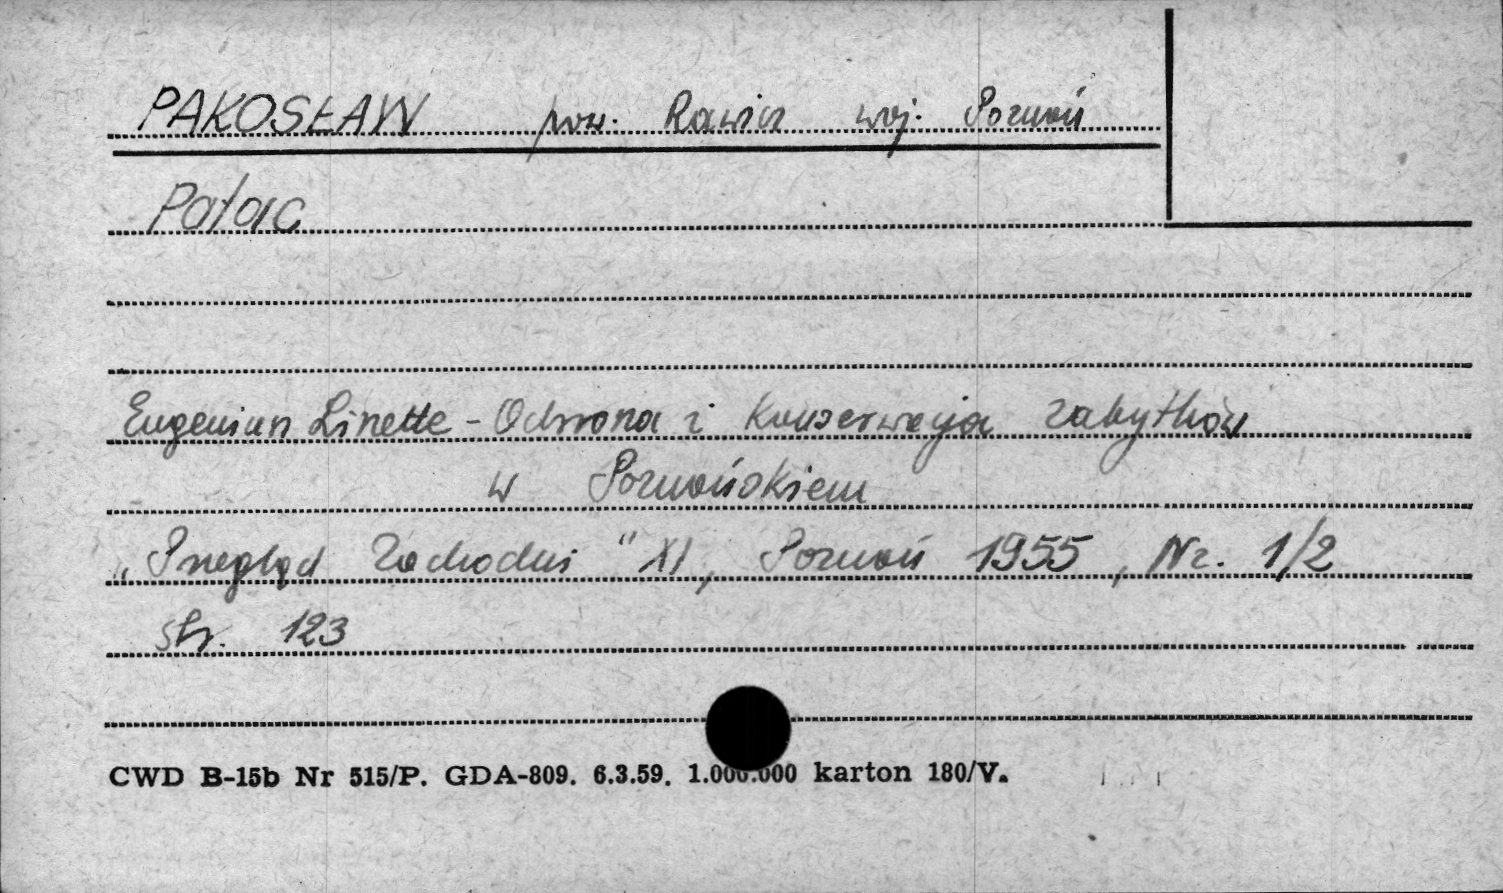 PAKOSŁAW pow. Rawicz woj. Poznań
Pałac
Eugeniusz Linette - Ochrona i konserwacja zabytków
w Poznańskiem
„Przegląd Zachodni" XI, Poznań 1955, Nr. 1/2
str. 123
CWD B-15b Nr 515/P. GDA-809. 6.3.59. 1.000.000 karton 180/V.